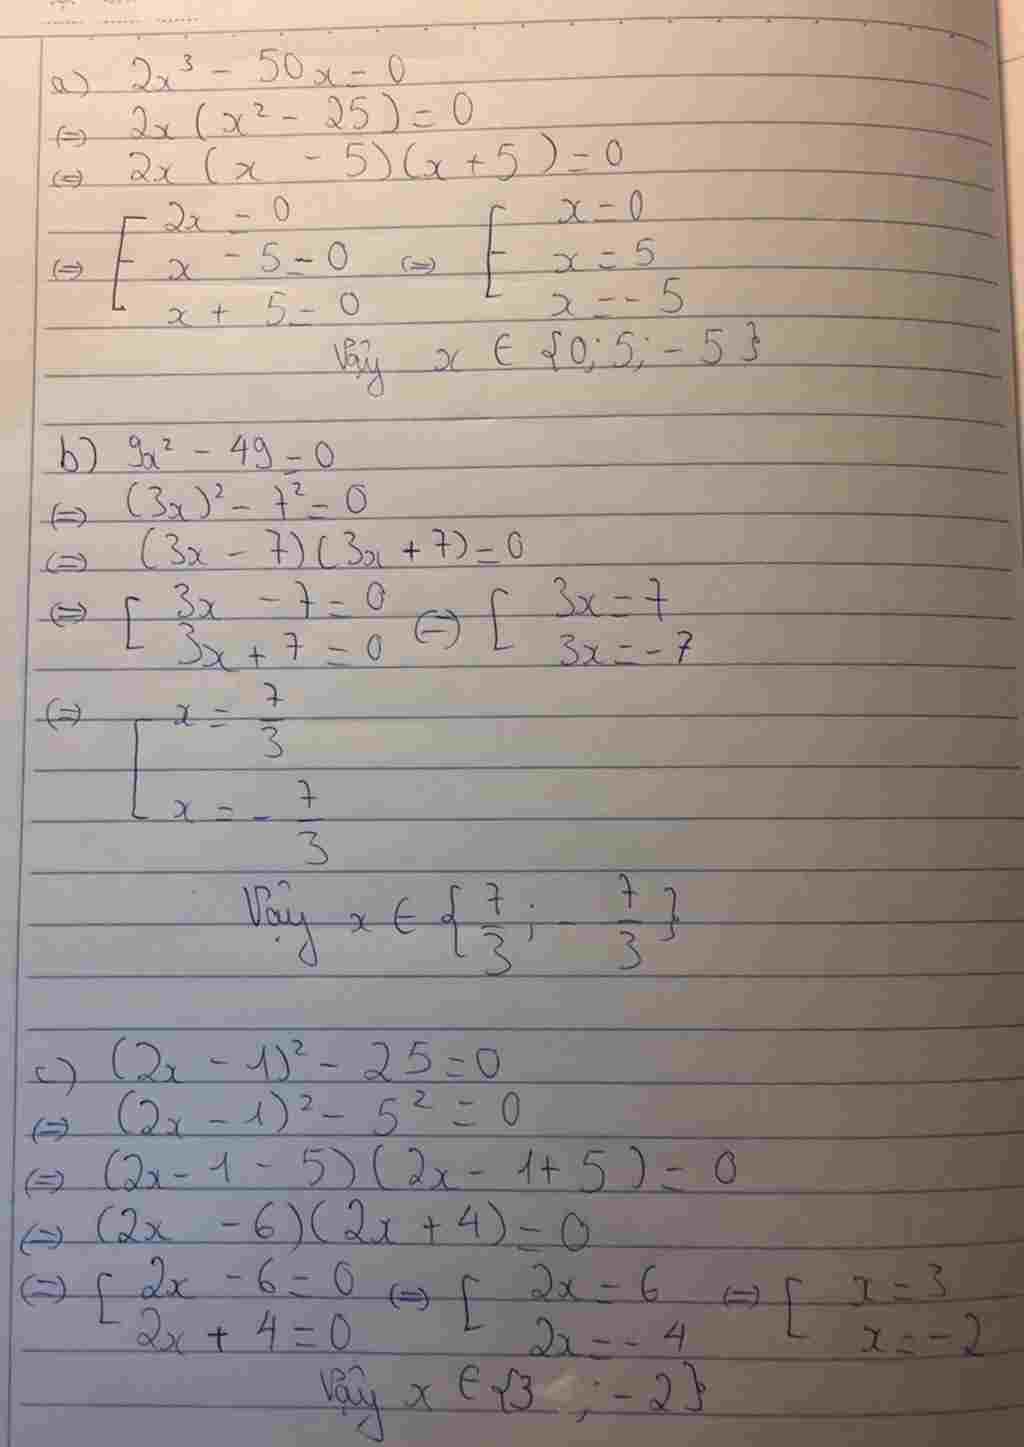 a) 2x³ - 50x = 0
⇔ 2x (x² - 25) = 0
⇔ 2x (x - 5)(x + 5) = 0
⇔ [ 2x = 0 ⇔ [ x = 0
x - 5 = 0 x = 5
x + 5 = 0 x = -5
Vậy x ∈ {0; 5; -5}
b) 9x² - 49 = 0
⇔ (3x)² - 7² = 0
⇔ (3x - 7)(3x + 7) = 0
⇔ [ 3x - 7 = 0 ⇔ [ 3x = 7
3x + 7 = 0 3x = -7
⇔ [ x = 7/3
x = - 7/3
Vậy x ∈ {7/3; - 7/3}
c) (2x - 1)² - 25 = 0
⇔ (2x - 1)² - 5² = 0
⇔ (2x - 1 - 5)(2x - 1 + 5) = 0
⇔ (2x - 6)(2x + 4) = 0
⇔ [ 2x - 6 = 0 ⇔ [ 2x = 6 ⇔ [ x = 3
2x + 4 = 0 2x = -4 x = -2
Vậy x ∈ {3 ; -2}